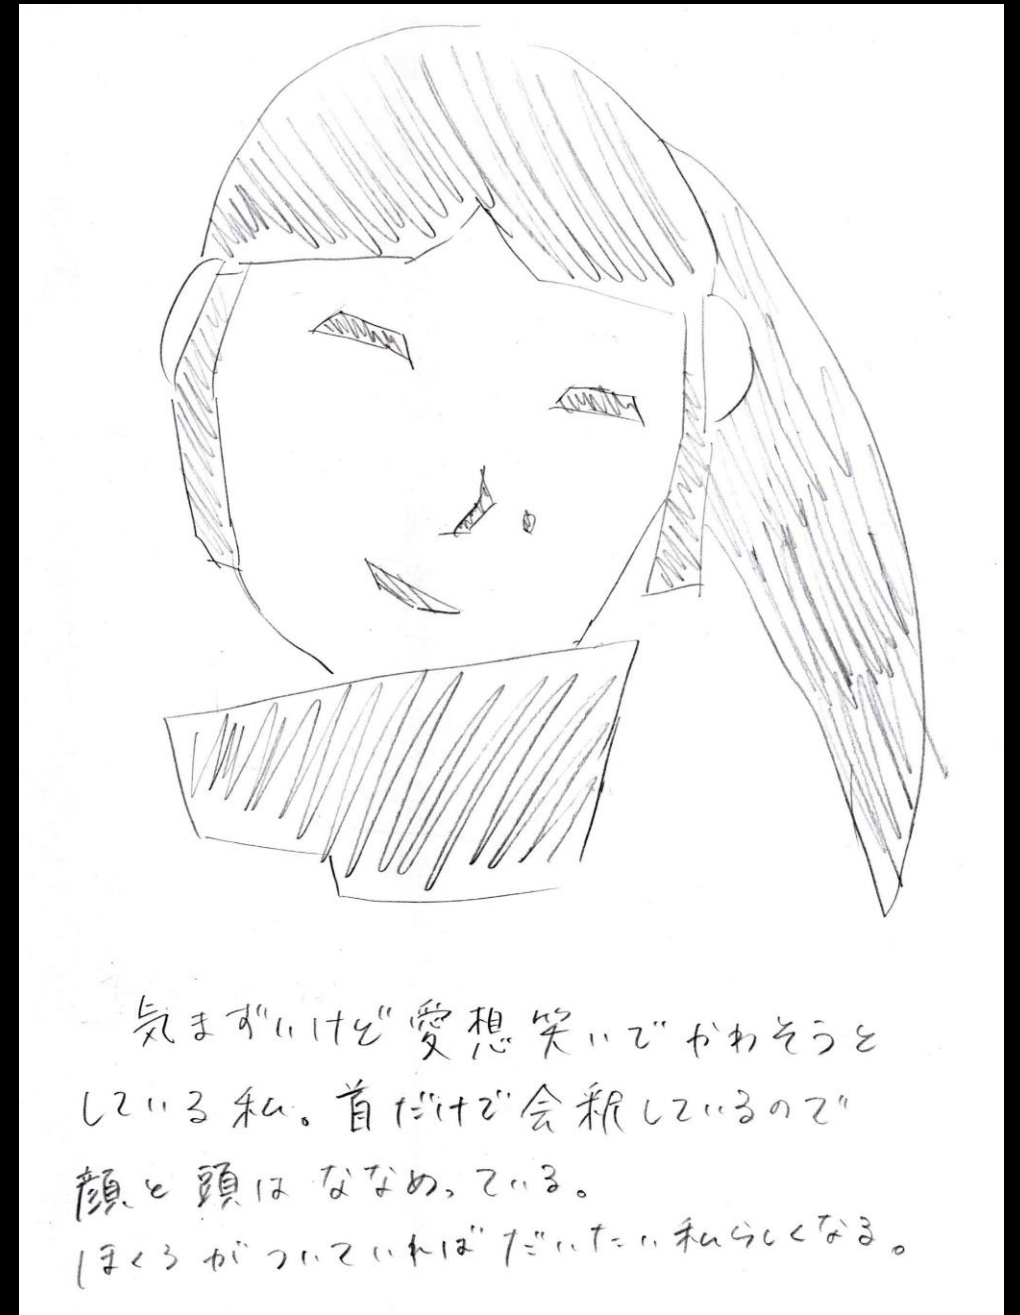 気まずいけど愛想笑いでかわそうと
している私。首だけで会釈しているので
顔と頭はななめっている。
ほくろがついていればだいたい私らしくなる。